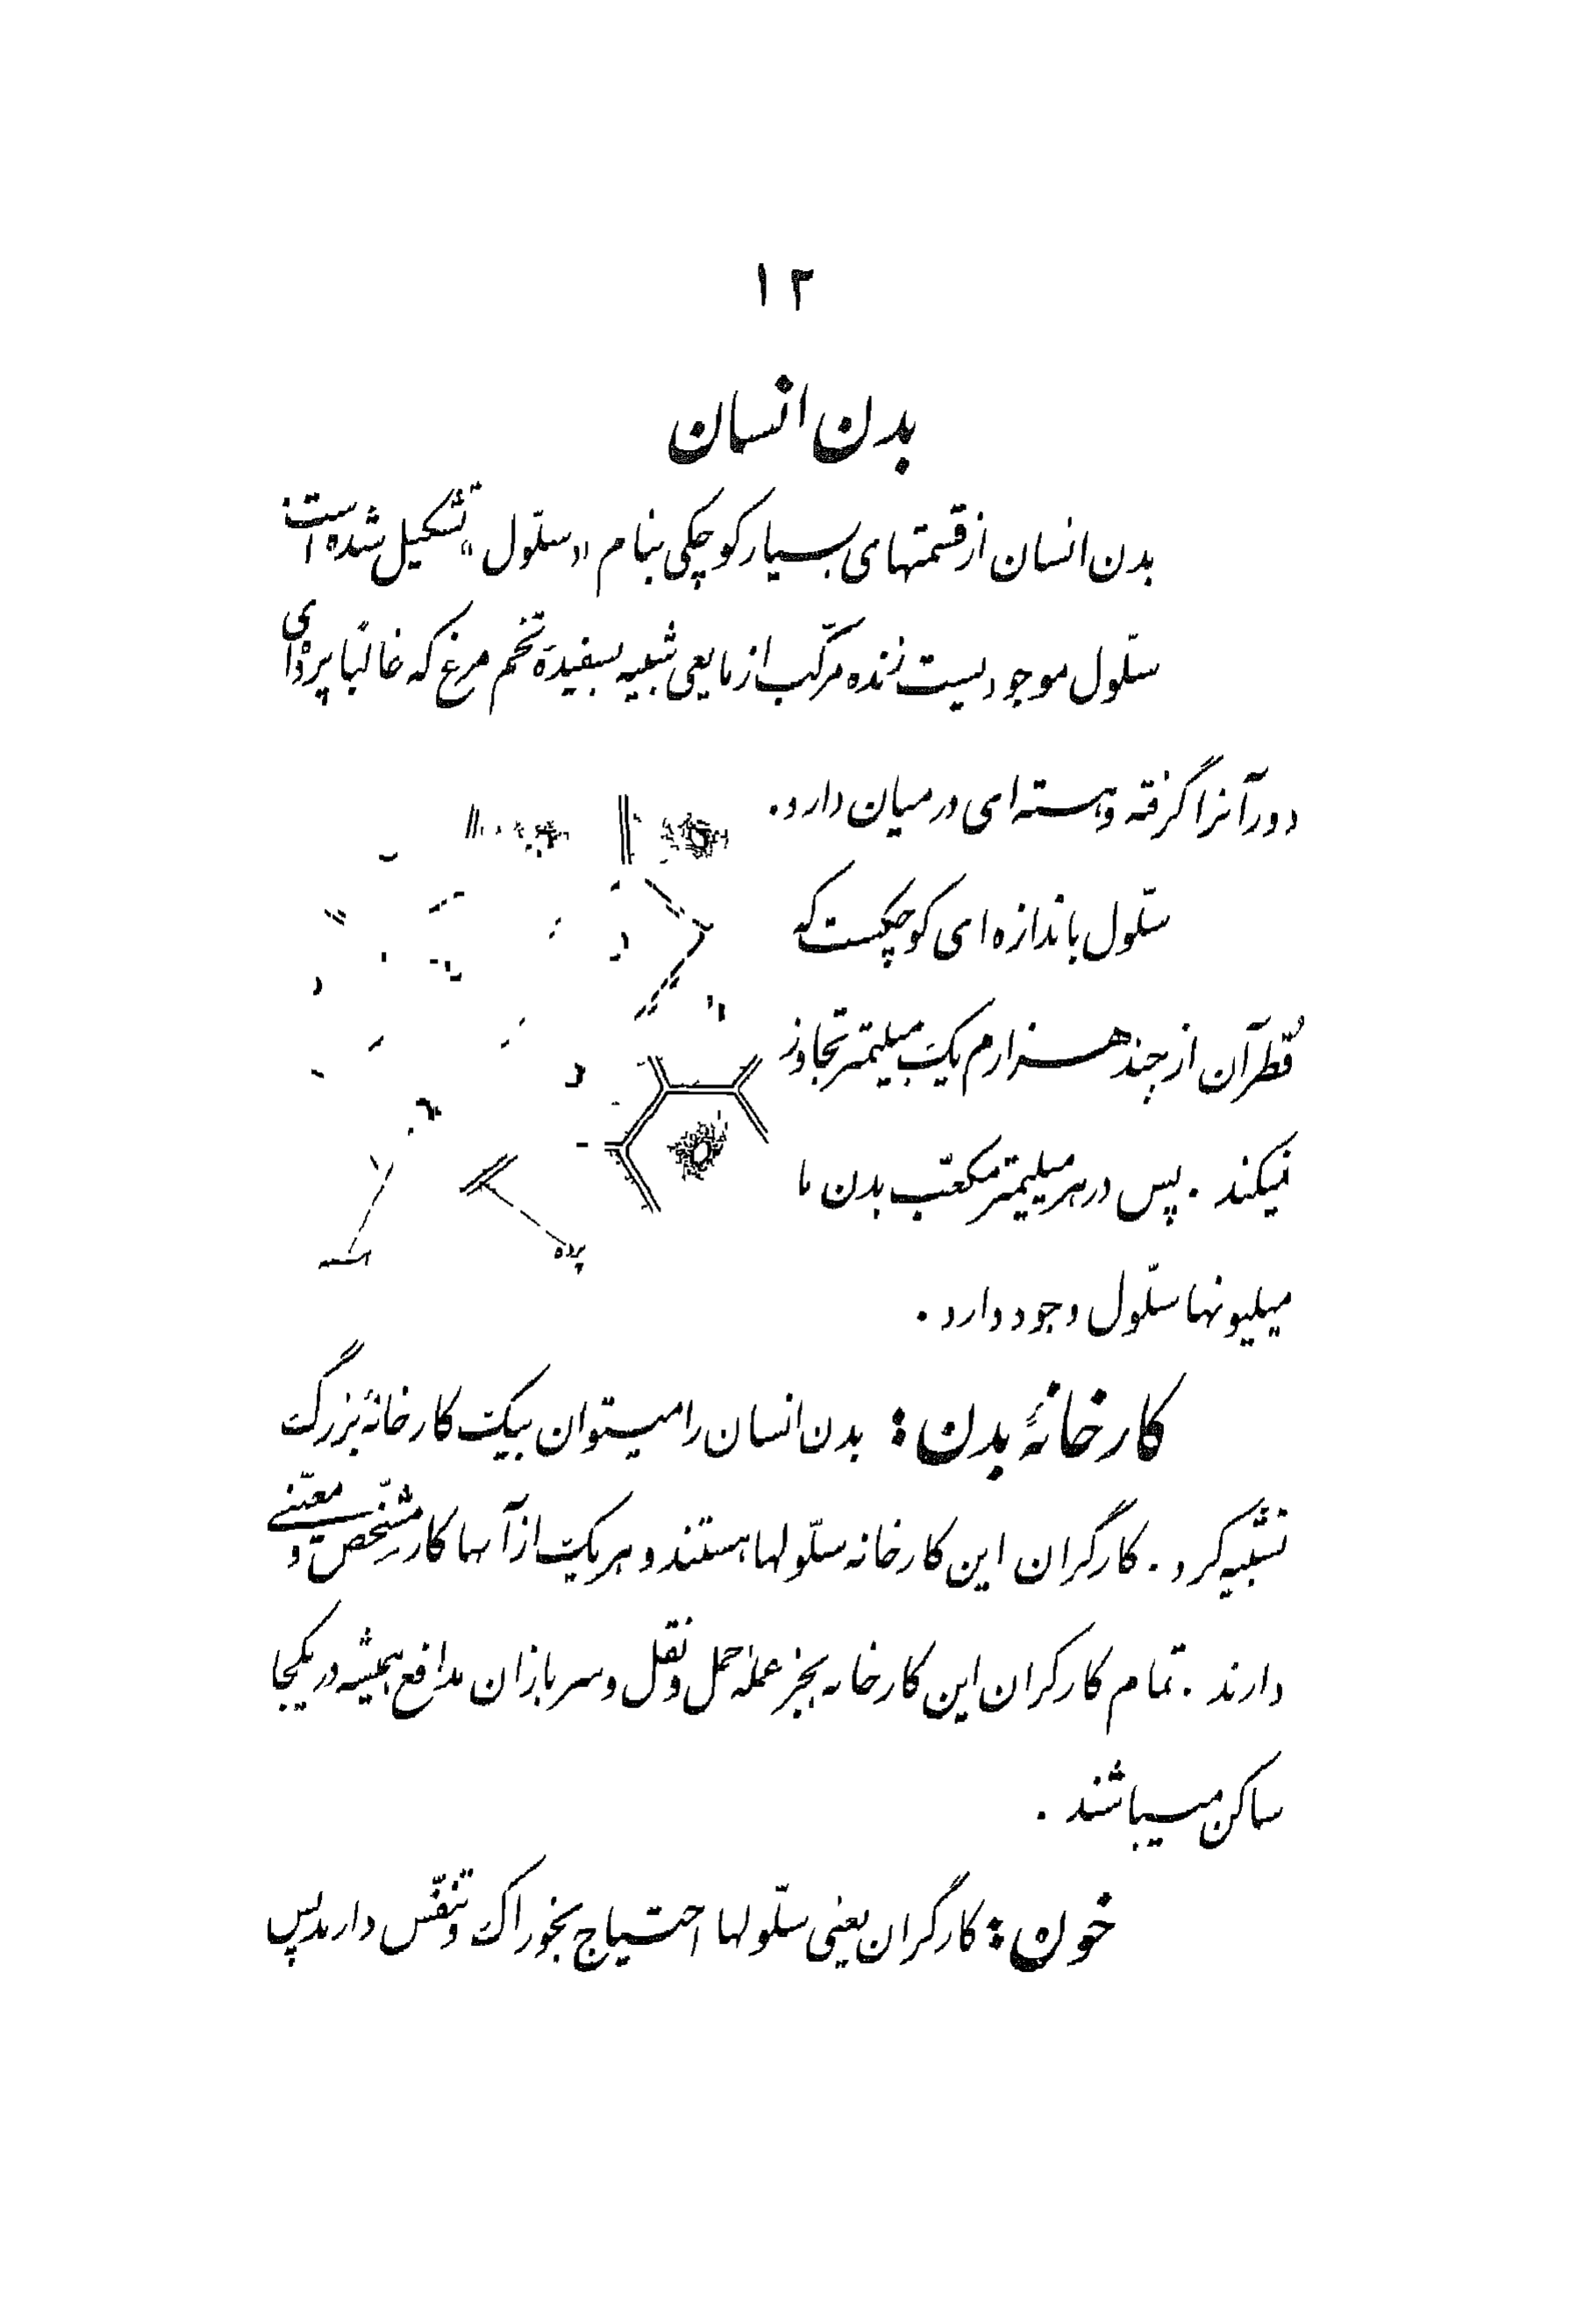 ۱۲
بدن انسان
بدن انسان از قسمتهای بسیار کوچکی بنام «سلّول» تشکیل شده است.
سلّول موجودیست زنده مرکّب از مایعی شبیه بسفیدهٔ تخم مرغ که غالبًا پرده‌ای
دور آنرا گرفته و هسته‌ای در میان دارد.
سلّول باندازه‌ای کوچکست که
قُطر آن از چند هزارم یک میلیمتر تجاوز
نمیکند . پس در هر میلیمتر مکعّب بدن ما
میلیونها سلّول وجود دارد .
پرده
هسته
کارخانهٔ بدن : بدن انسان را میتوان بیک کارخانهٔ بزرگ
تشبیه کرد . کارگران این کارخانه سلّولها هستند و هر یک از آنها کار مشخّص و معیّنی
دارند . تمام کارگران این کارخانه بجز عملهٔ حمل و نقل و سربازان مدافع همیشه در یکجا
ساکن میباشند .
خون : کارگران یعنی سلّولها احتیاج بخوراک و تنفّس دارند پس